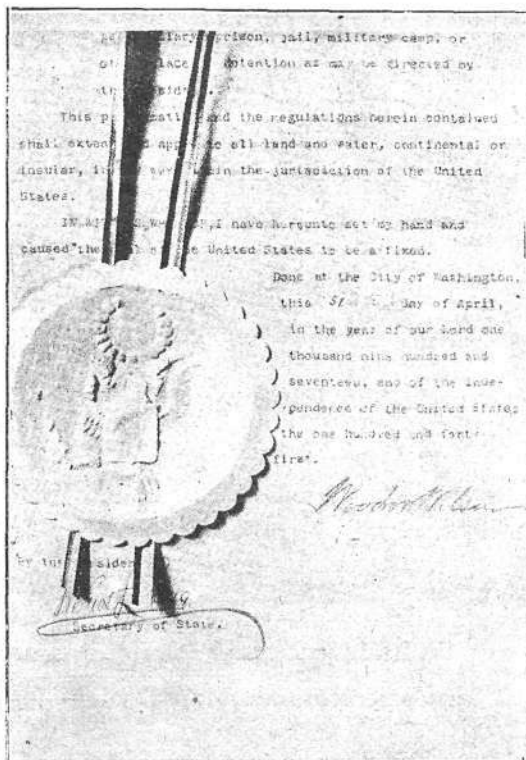 prison, jail, military camp, or
detention as may be directed by
This and the regulations herein contained
shall to all land and water, continental or
insular, in the jurisdiction of the United
States.
IN I have hereunto set my hand and
caused the United States to be affixed.
Done at the City of Washington,
this day of April,
in the year of our Lord one
thousand nine hundred and
seventeen, and of the Inde-
pendence of the United States
the one hundred and forty-
first.
Woodrow Wilson
By the
Secretary of State.